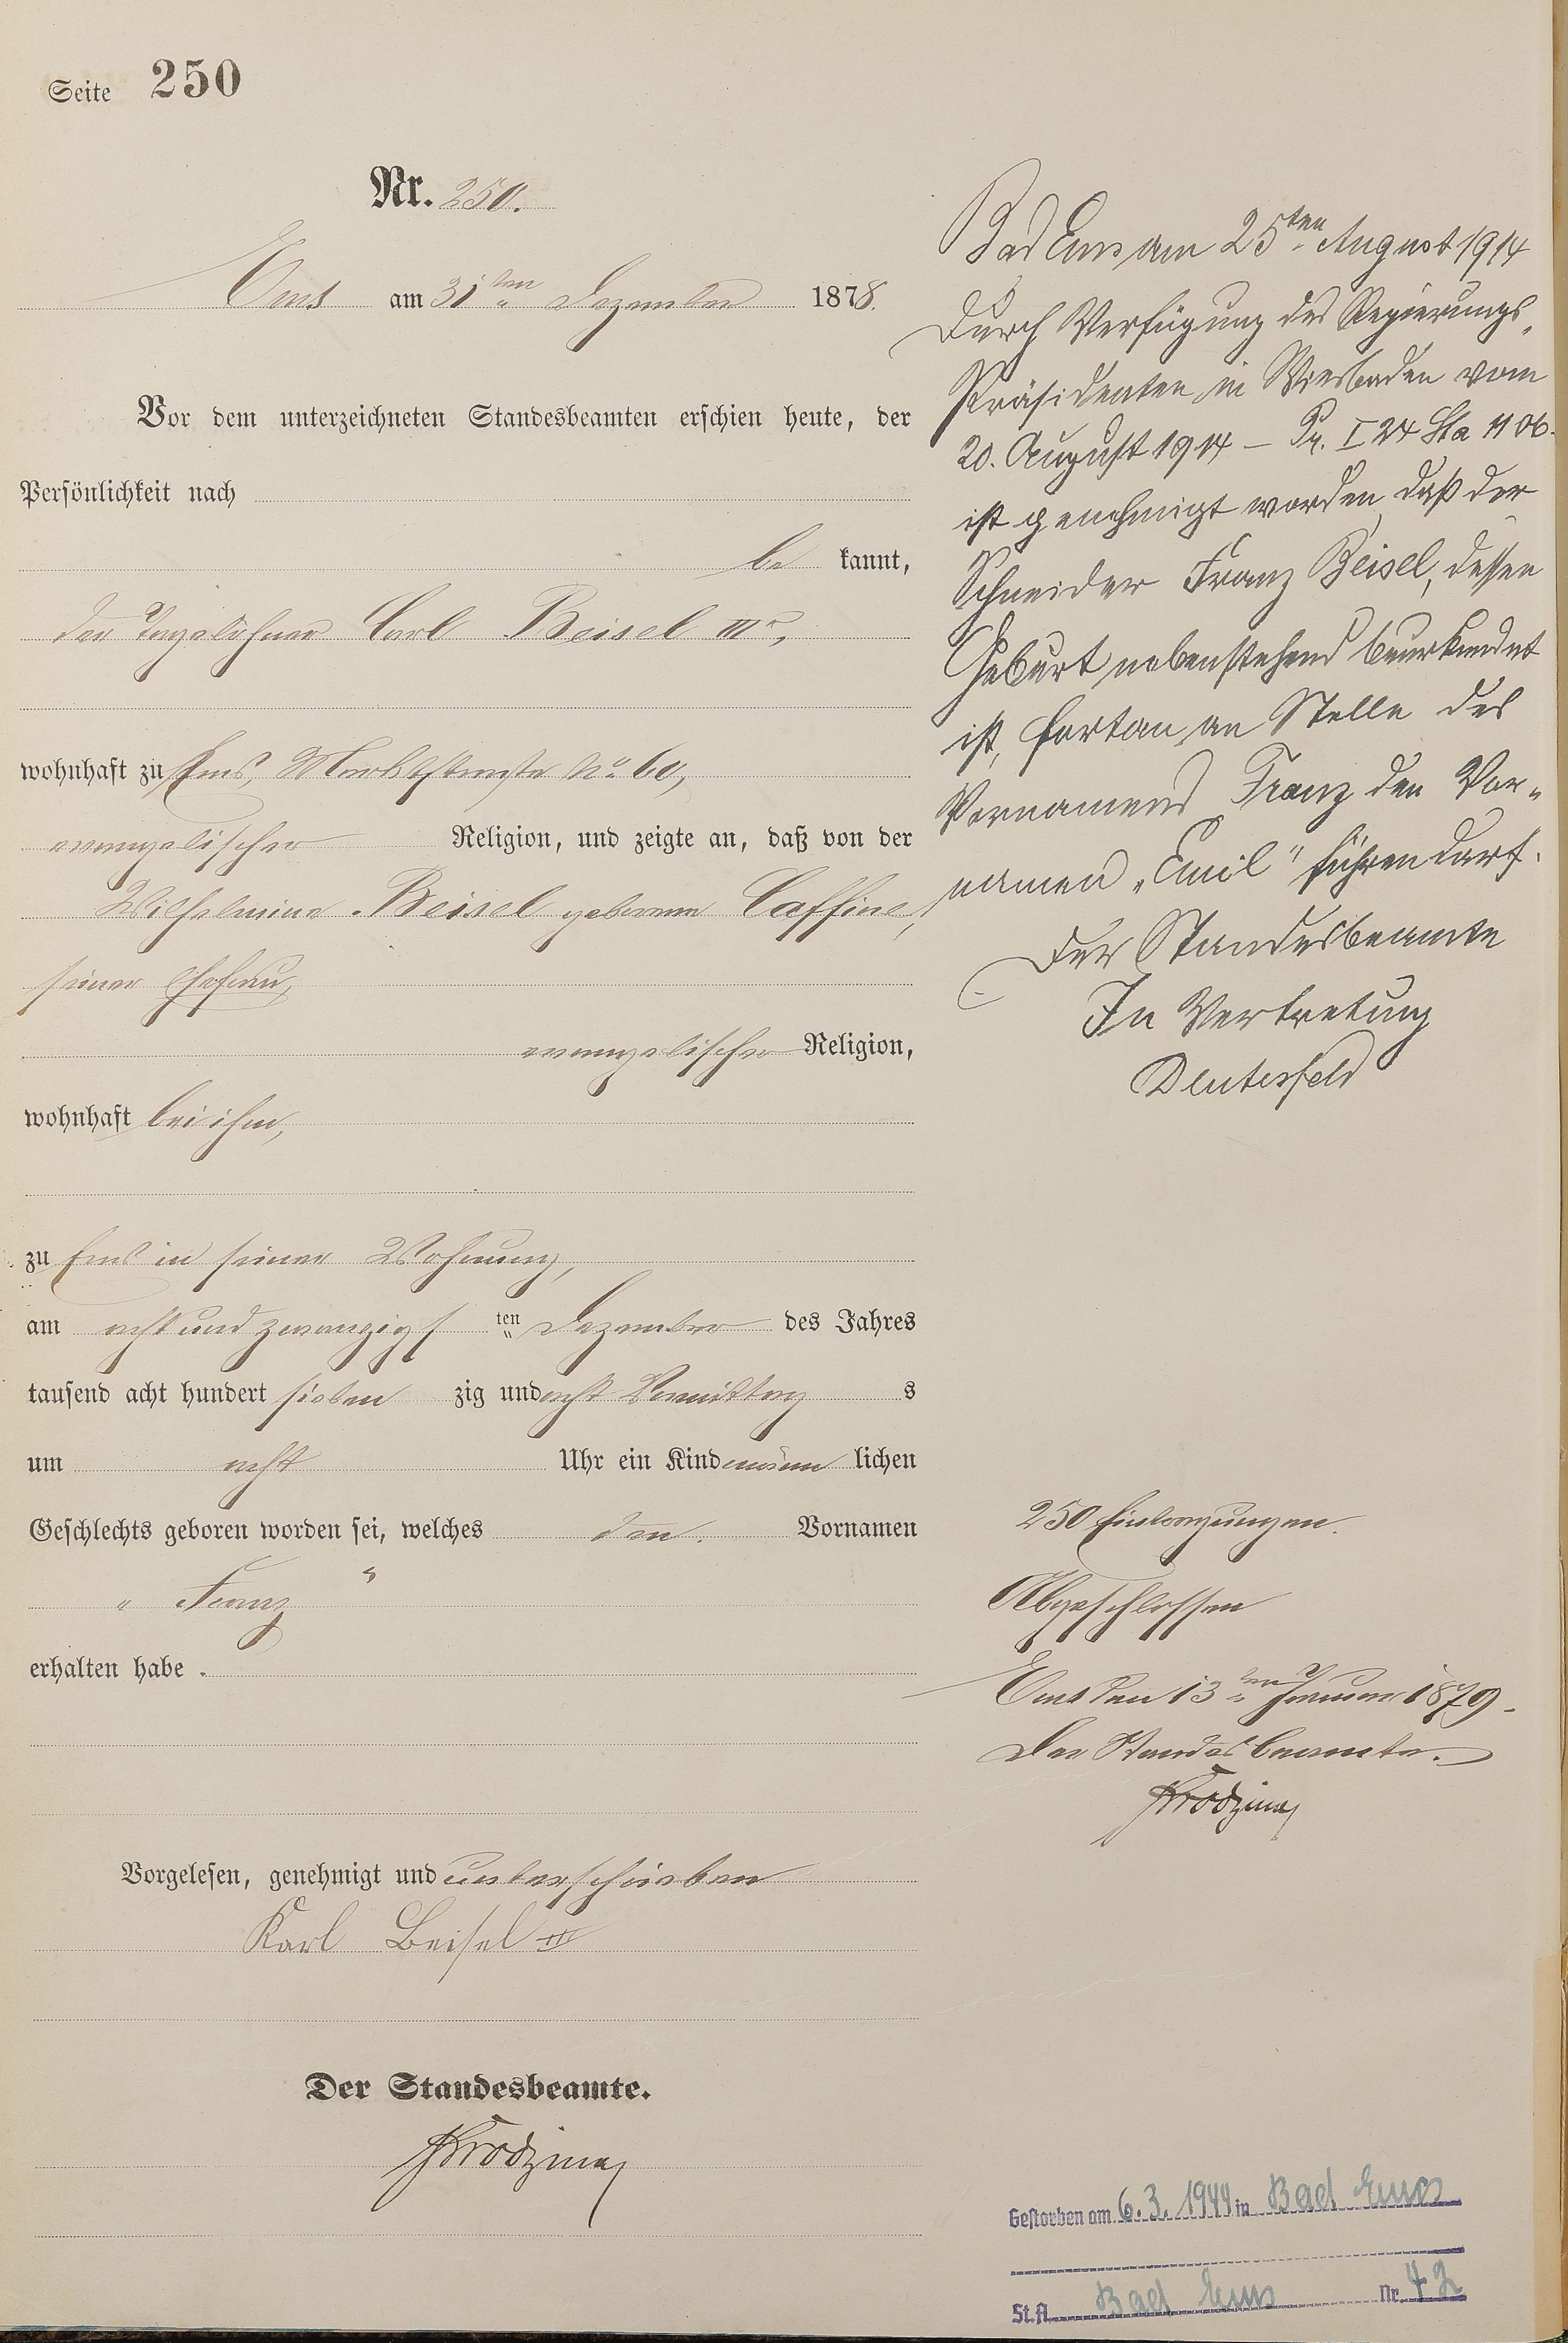 Seite 250
Nr. 250.
Ems am 31ten Dezember 1878.
Vor dem unterzeichneten Standesbeamten erschien heute, der
Persönlichkeit nach
be kannt,
der Tagelöhner Carl Beisel IIIr,
wohnhaft zu Ems, Marktstraße No 60,
evangelischer Religion, und zeigte an, daß von der
Wilhelmine Beisel geborene Caffine,
seiner Ehefrau,
evangelischer Religion,
wohnhaft bei ihm,
zu Ems in seiner Wohnung,
am acht und zwanzigs ten Dezember des Jahres
tausend acht hundert sieben zig und acht Vormittag s
um acht Uhr ein Kind männ lichen
Geschlechts geboren worden sei, welches den Vornamen
„ Franz “
erhalten habe.
Vorgelesen, genehmigt und unterschrieben
Karl Beisel III
Der Standesbeamte.
Bad Ems am 25ten August 1914
Durch Verfügung des Regierungs-
Präsidenten in Wiesbaden vom
20. August 1914 – Pr. I 24 Sta 1106.
ist genehmigt worden, daß der
Schneider Franz Beisel, dessen
Geburt nebenstehend beurkundet
ist, fortan an Stelle des
Vornamens Franz den Vor-
namen „Emil“ führen darf.
Der Standesbeamte
In Vertretung
250 Eintragungen.
Abgeschlossen
Ems den 13ten Januar 1879.
Der Standesbeamte.
Gestorben am 6.3.1944 in Bad Ems
St.A. Bad Ems Nr. 42